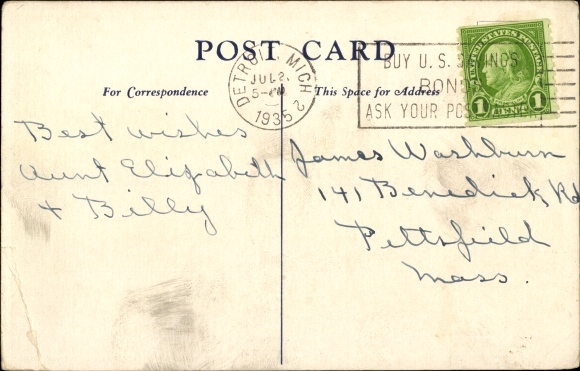 POST CARD
For Correspondence
This Space for Address
DETROIT, MICH.
JUL 2
5-PM
1935
2
BUY U.S. SAVINGS
BONDS
ASK YOUR POSTMASTER
UNITED STATES POSTAGE
1 CENT 1
Best wishes
Aunt Elizabeth
+ Billy
James Washburn
141 Benedick Rd
Pittsfield
Mass.